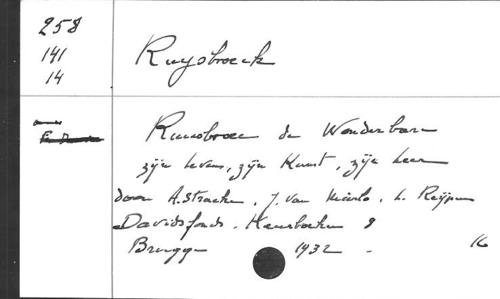 258
141
14
Ruysbroeck
Ruusbroec de Wonderbare
zijn Leven, zijn Kunst, zijn Leer
door A. Stracke, J. Van Mierlo, L. Reypens
Davidsfonds. Keurboeken 9
Brugge 1932 - 16